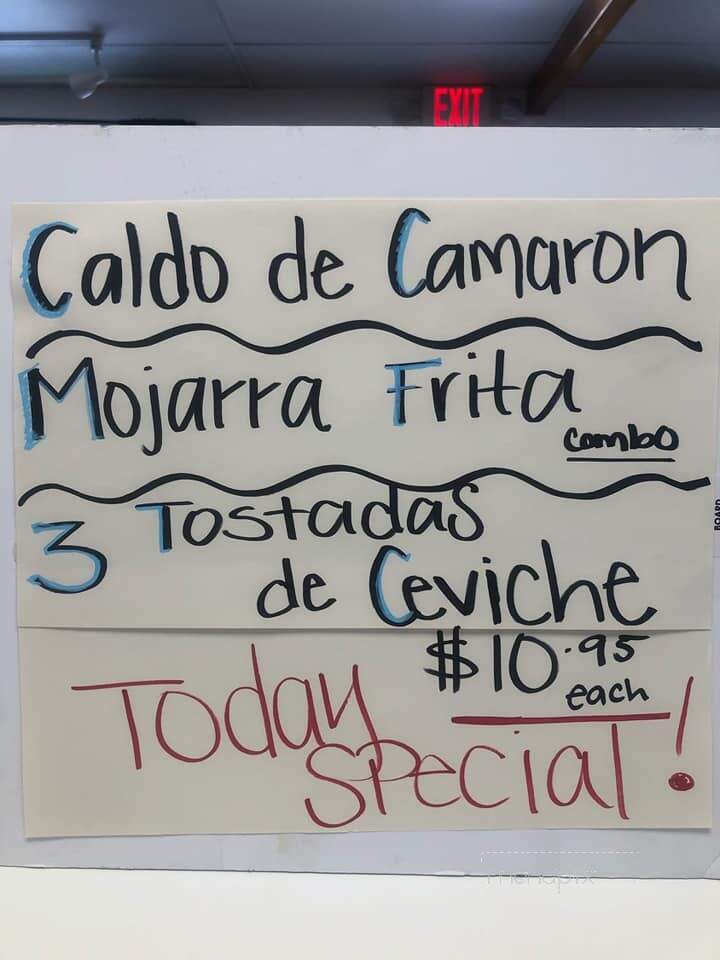 EXIT
Caldo de Camaron
Mojarra Frita
combo
3 Tostadas
de Ceviche
$10.95
each
Today
special!
BOARD
menupix